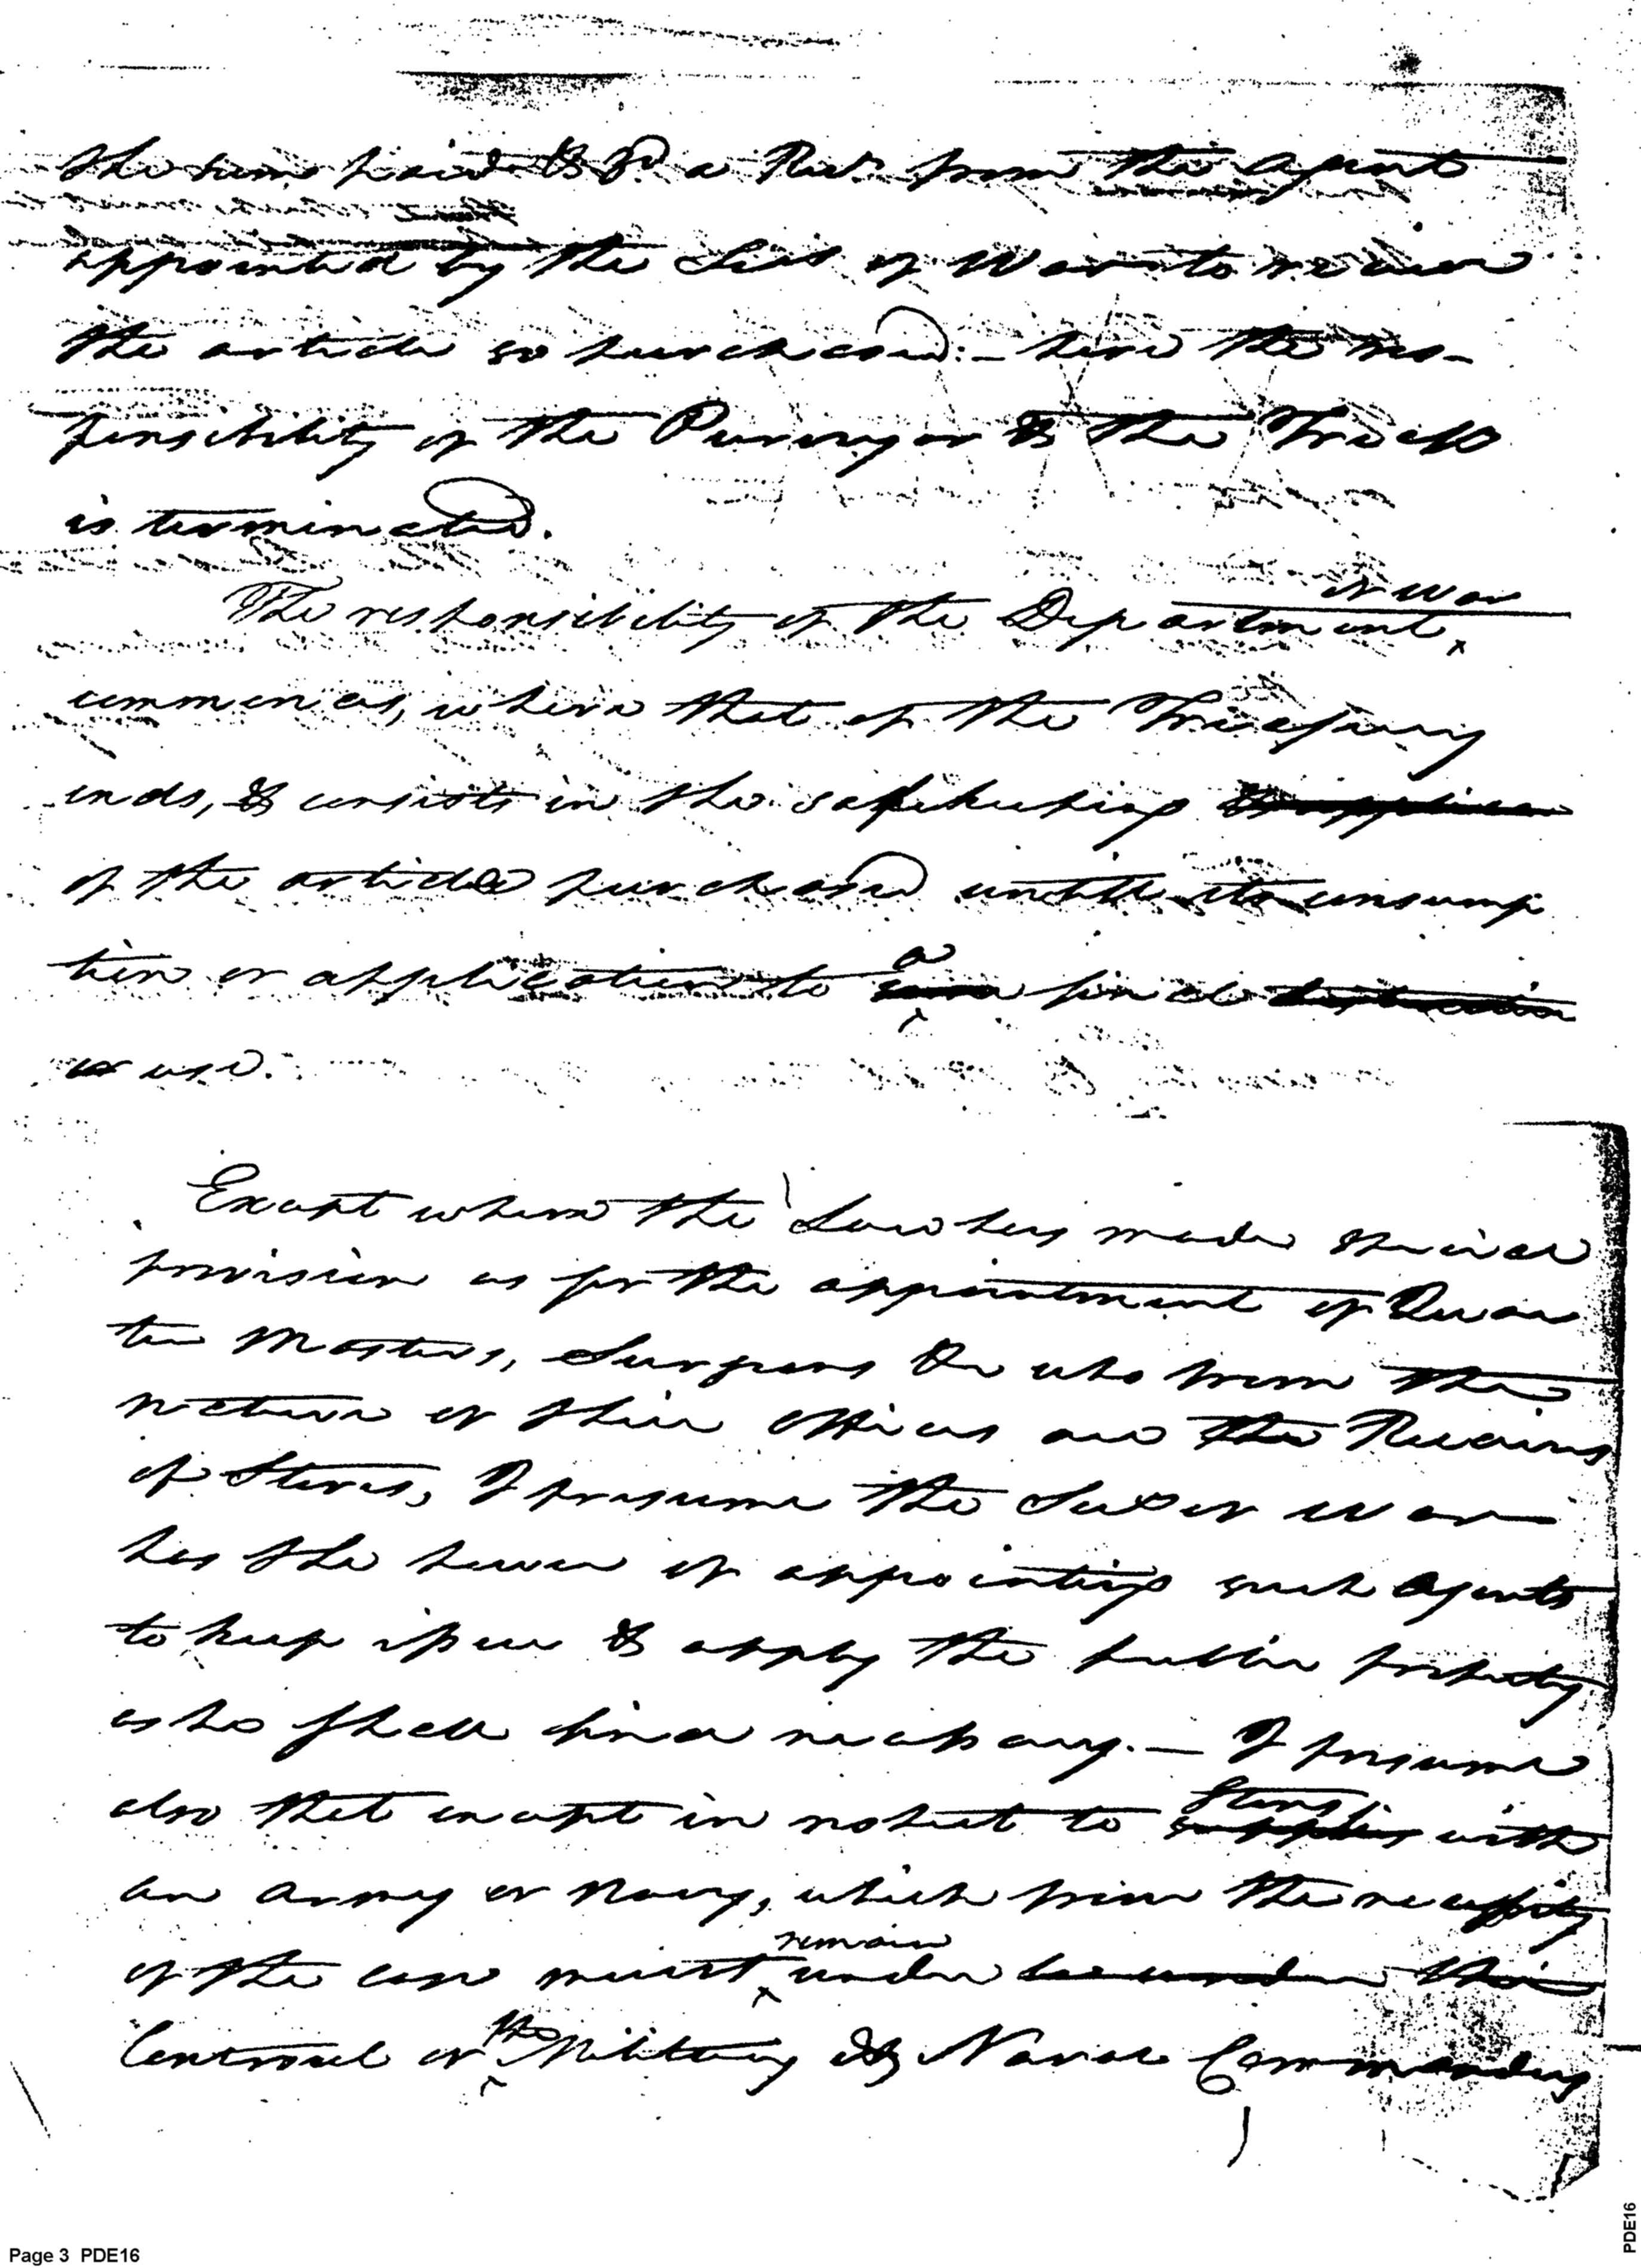 the sum paid & 3d. a Rect. from the agent
appointed by the Secy of War to receive
the article so purchased:— here the res-
ponsibility of the Purveyor & the Treasy
is terminated.
of War
The responsibility of the Department
commences, where that of the Treasury
ends, & consists in the safekeeping
of the article purchased untill its consump
tion or application to a final
use.
Except where the Law has made special
provision as for the appointment of Quar
ter Masters, Surgeons &c who from the
nature of their offices are the Receivers
of Stores, I presume the Secy of War
has the power of appointing such agents
to keep issue & apply the public property
as he shall find necessary.— I presume
also that except in respect to stores with
an army or navy, which from the necessity
remain
of the case must under
Controul of the Military & Naval Commanders
Page 3 PDE16
PDE16